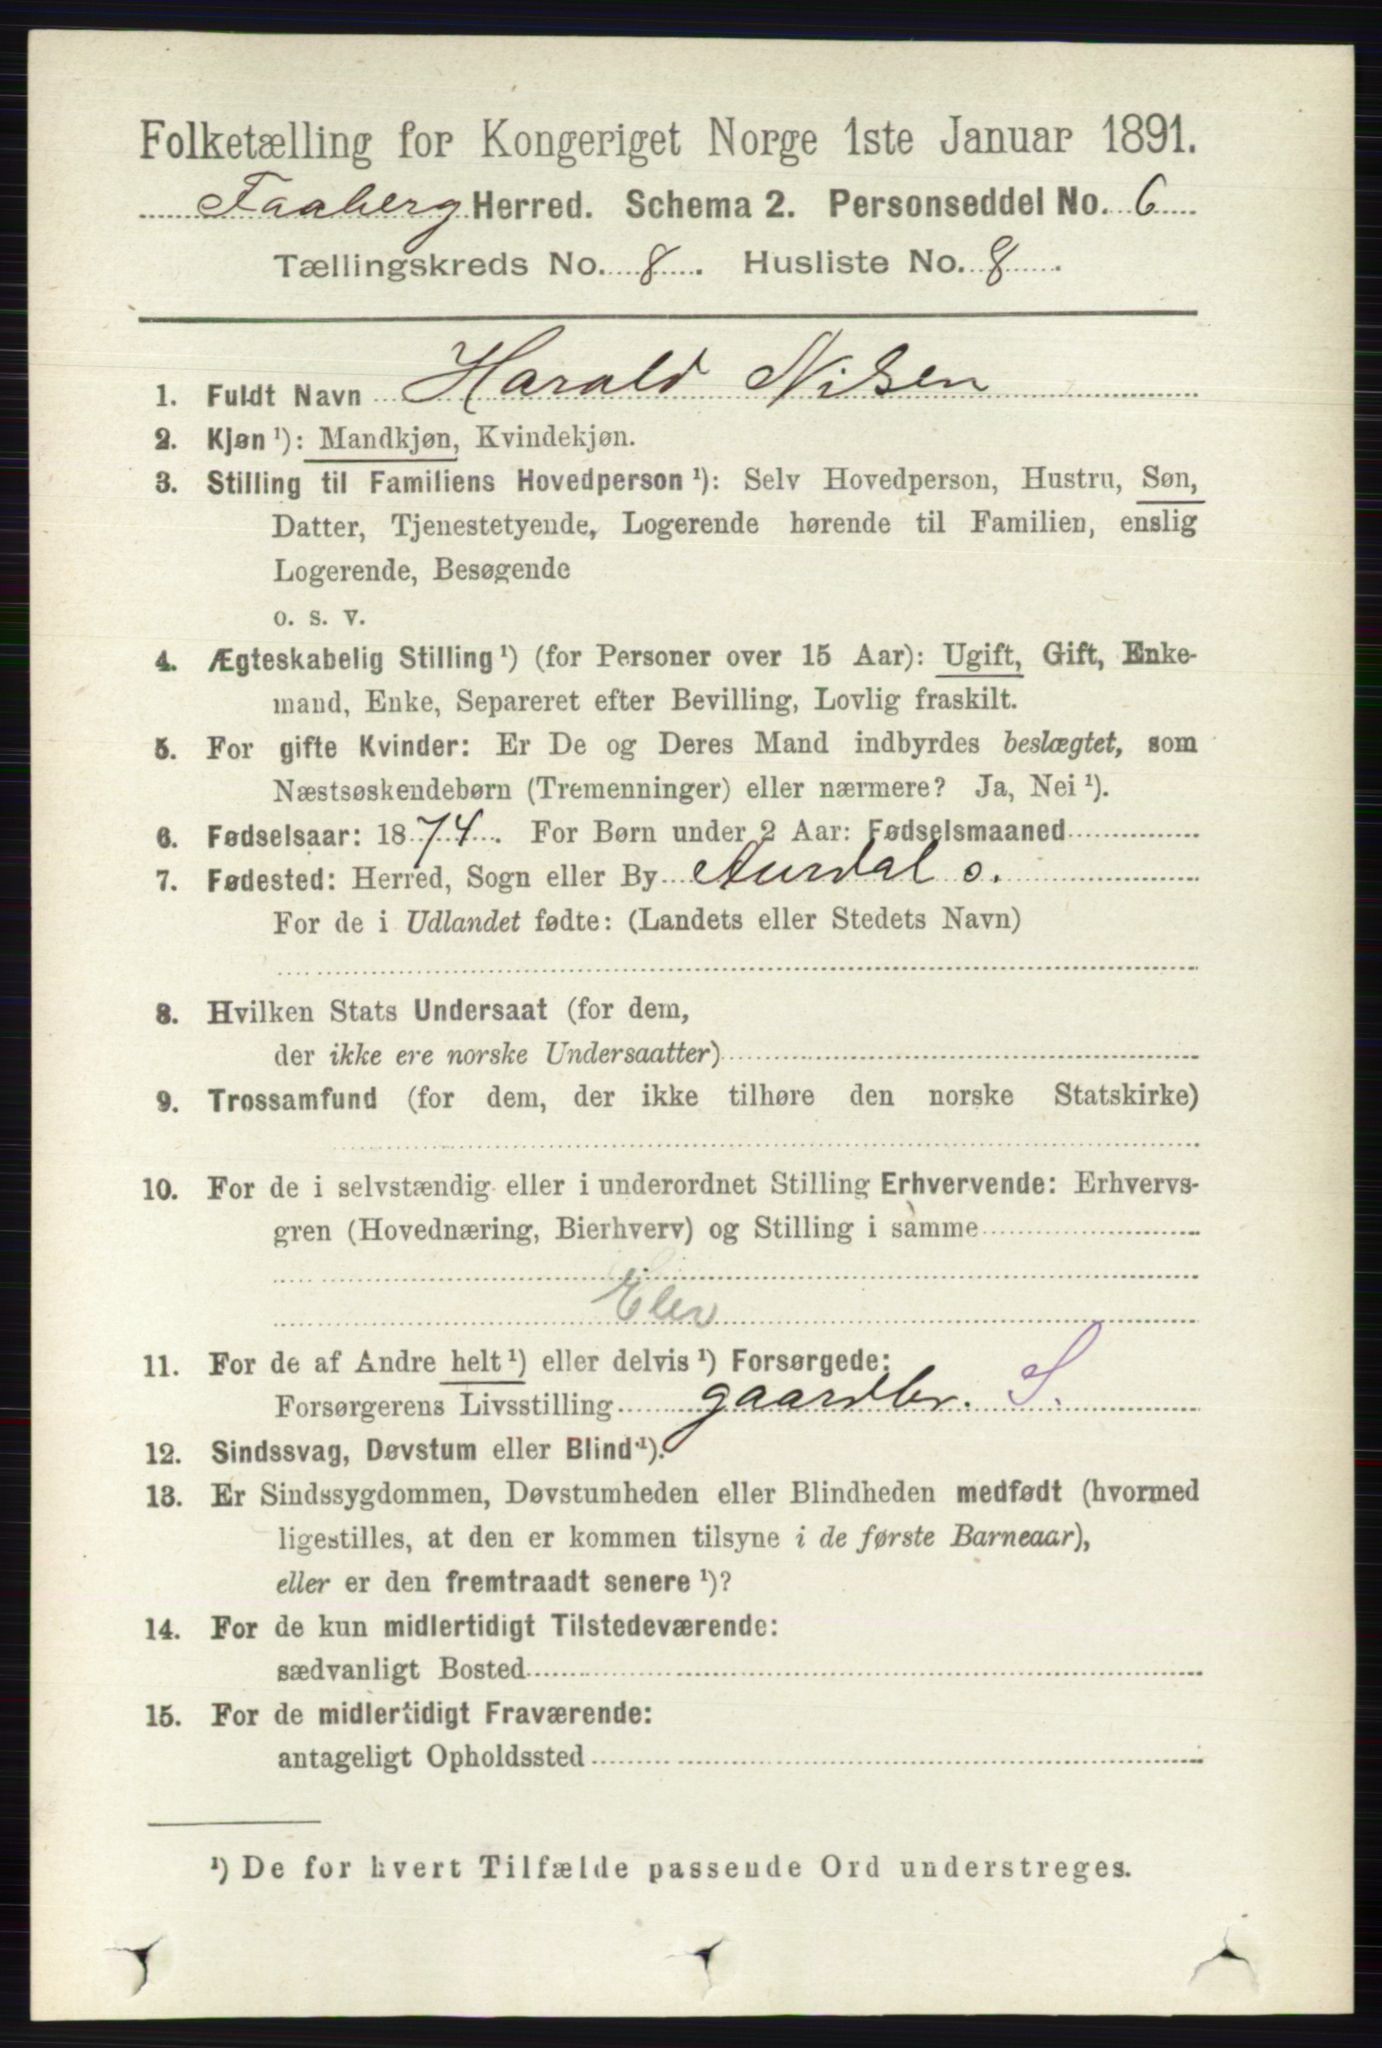 Folketælling for Kongeriget Norge 1ste Januar 1891.
Faaberg Herred. Schema 2. Personseddel No. 6
Tællingskreds No. 8. Husliste No. 8
1. Fuldt Navn Harald Nilsen
2. Kjøn ¹): Mandkjøn, Kvindekjøn.
3. Stilling til Familiens Hovedperson ¹): Selv Hovedperson, Hustru, Søn,
Datter, Tjenestetyende, Logerende hørende til Familien, enslig
Logerende, Besøgende
o. s. v.
4. Ægteskabelig Stilling ¹) (for Personer over 15 Aar): Ugift, Gift, Enke-
mand, Enke, Separeret efter Bevilling, Lovlig fraskilt.
5. For gifte Kvinder: Er De og Deres Mand indbyrdes beslægtet, som
Næstsøskendebørn (Tremenninger) eller nærmere? Ja, Nei ¹).
6. Fødselsaar: 1874. For Børn under 2 Aar: Fødselsmaaned
7. Fødested: Herred, Sogn eller By Aurdal s.
For de i Udlandet fødte: (Landets eller Stedets Navn)
8. Hvilken Stats Undersaat (for dem,
der ikke ere norske Undersaatter)
9. Trossamfund (for dem, der ikke tilhøre den norske Statskirke)
10. For de i selvstændig eller i underordnet Stilling Erhvervende: Erhvervs-
gren (Hovednæring, Bierhverv) og Stilling i samme
Elev
11. For de af Andre helt ¹) eller delvis ¹) Forsørgede:
Forsørgerens Livsstilling gaardbr. S.
12. Sindssvag, Døvstum eller Blind ¹).
13. Er Sindssygdommen, Døvstumheden eller Blindheden medfødt (hvormed
ligestilles, at den er kommen tilsyne i de første Barneaar),
eller er den fremtraadt senere ¹)?
14. For de kun midlertidigt Tilstedeværende:
sædvanligt Bosted
15. For de midlertidigt Fraværende:
antageligt Opholdssted
¹) De for hvert Tilfælde passende Ord understreges.